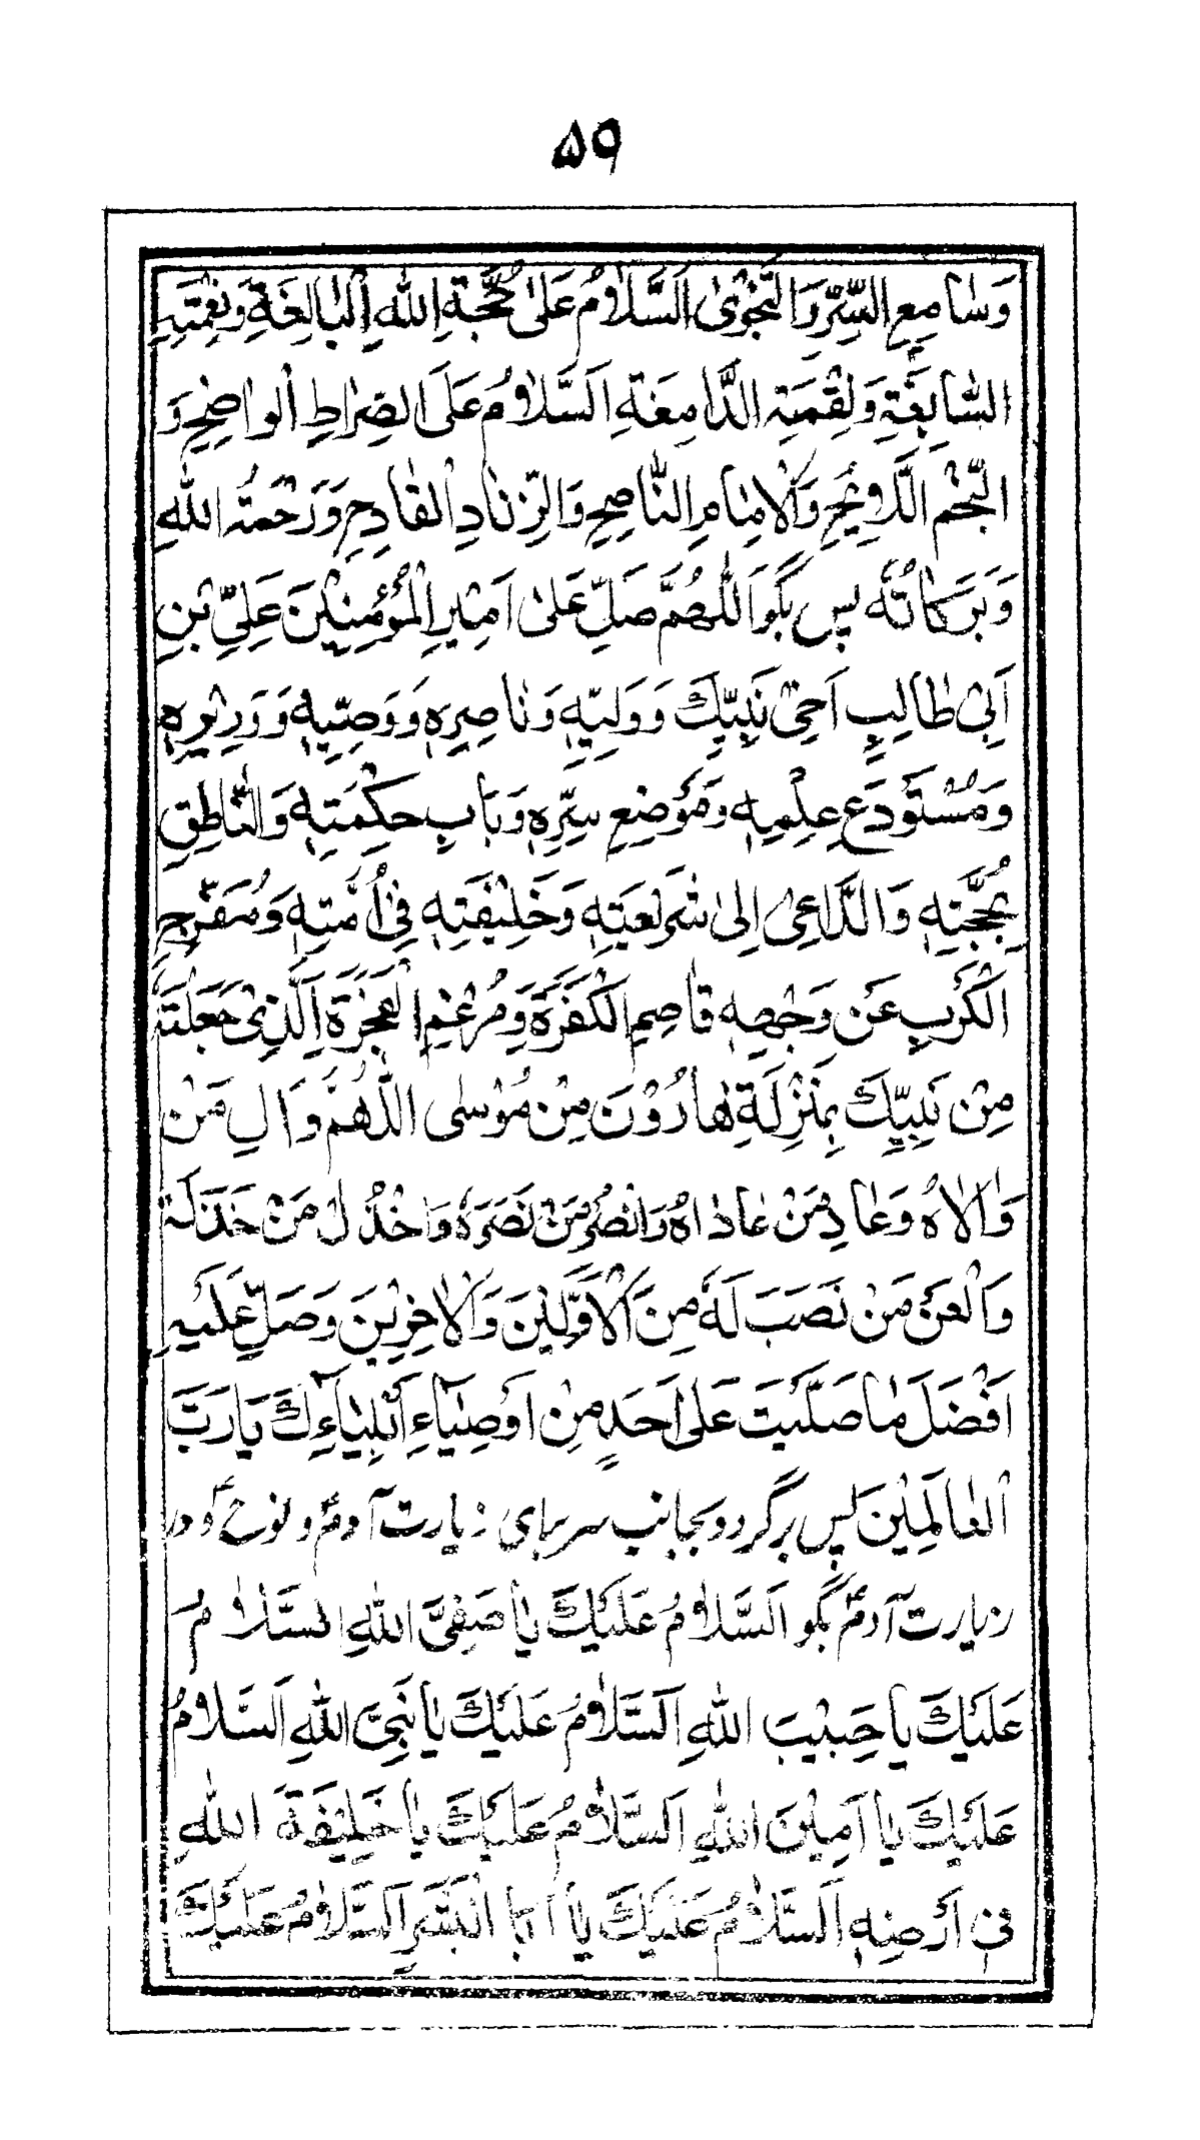 ۵۹
وَسٰامِعِ السِّرِّ وَالنَّجْوٰىٰ اَلسَّلٰامُ عَلىٰ حُجَّةِ اللّٰهِ اِلْبٰالِغَةِ وَنِعْمَتِهِ
السّٰابِغَةِ وَنِقْمَتِهِ الدّٰامِغَةِ اَلسَّلٰامُ عَلَى الصِّرٰاطِ الْوٰاضِحِ وَ
النَّجْمِ اللّٰايِحِ وَالْاِمٰامِ النّٰاصِحِ وَالزِّنٰادِ الْقٰادِحِ وَرَحْمَةُ اللّٰهِ
وَبَرَكٰاتُهُ پس بگو اَللّٰهُمَّ صَلِّ عَلىٰ اَمٖيْرِ الْمُؤْمِنٖيْنَ عَلِيِّ بْنِ
اَبٖيْ طٰالِبٍ اَخٖيْ نَبِيِّكَ وَوَلِيِّهٖ وَنٰاصِرِهٖ وَوَصِيِّهٖ وَوَزٖيْرِهٖ
وَمُسْتَوْدَعِ عِلْمِهٖ وَمَوْضِعِ سِرِّهٖ وَبَابِ حِكْمَتِهٖ وَالنّٰاطِقِ
بِحُجَّتِهٖ وَالدّٰاعِىْ اِلىٰ شَرٖيْعَتِهٖ وَخَلٖيْفَتِهٖ فٖىْ اُمَّتِهٖ وَمُفَرِّجِ
الْكَرْبِ عَنْ وَجْهِهٖ قٰاصِمِ الْكَفَرَةِ وَمُرْغِمِ الْفَجَرَةِ اَلَّذٖىْ جَعَلْتَهُ
مِنْ نَبِيِّكَ بِمَنْزِلَةِ هٰارُوْنَ مِنْ مُوْسٰى اللّٰهُمَّ وَالِ مَنْ
وٰالٰاهُ وَعٰادِ مَنْ عٰادٰاهُ وَانْصُرْ مَنْ نَصَرَهُ وَاخْذُلْ مَنْ خَذَلَهُ
وَالْعَنْ مَنْ نَصَبَ لَهُ مِنَ الْاَوَّلٖيْنَ وَالْاٰخِرٖيْنَ وَصَلِّ عَلَيْهِ
اَفْضَلَ مٰا صَلَّيْتَ عَلىٰ اَحَدٍ مِنْ اَوْصِيٰاءِ اَنْبِيٰاءِكَ يَا رَبَّ
الْعٰالَمٖيْنَ پس برگردو بجانب سر برای زیارت آدمؑ و نوحؑ و در
زیارت آدمؑ بگو اَلسَّلٰامُ عَلَيْكَ يٰا صَفِىَّ اللّٰهِ السَّلٰامُ
عَلَيْكَ يٰا حَبٖيْبَ اللّٰهِ اَلسَّلٰامُ عَلَيْكَ يٰا نَبِىَّ اللّٰهِ اَلسَّلٰامُ
عَلَيْكَ يٰا اَمٖيْنَ اللّٰهِ اَلسَّلٰامُ عَلَيْكَ يٰا خَلٖيْفَةَ اللّٰهِ
فٖى اَرْضِهٖ اَلسَّلٰامُ عَلَيْكَ يٰا اَبَا الْبَشَرِ اَلسَّلٰامُ عَلَيْكَ